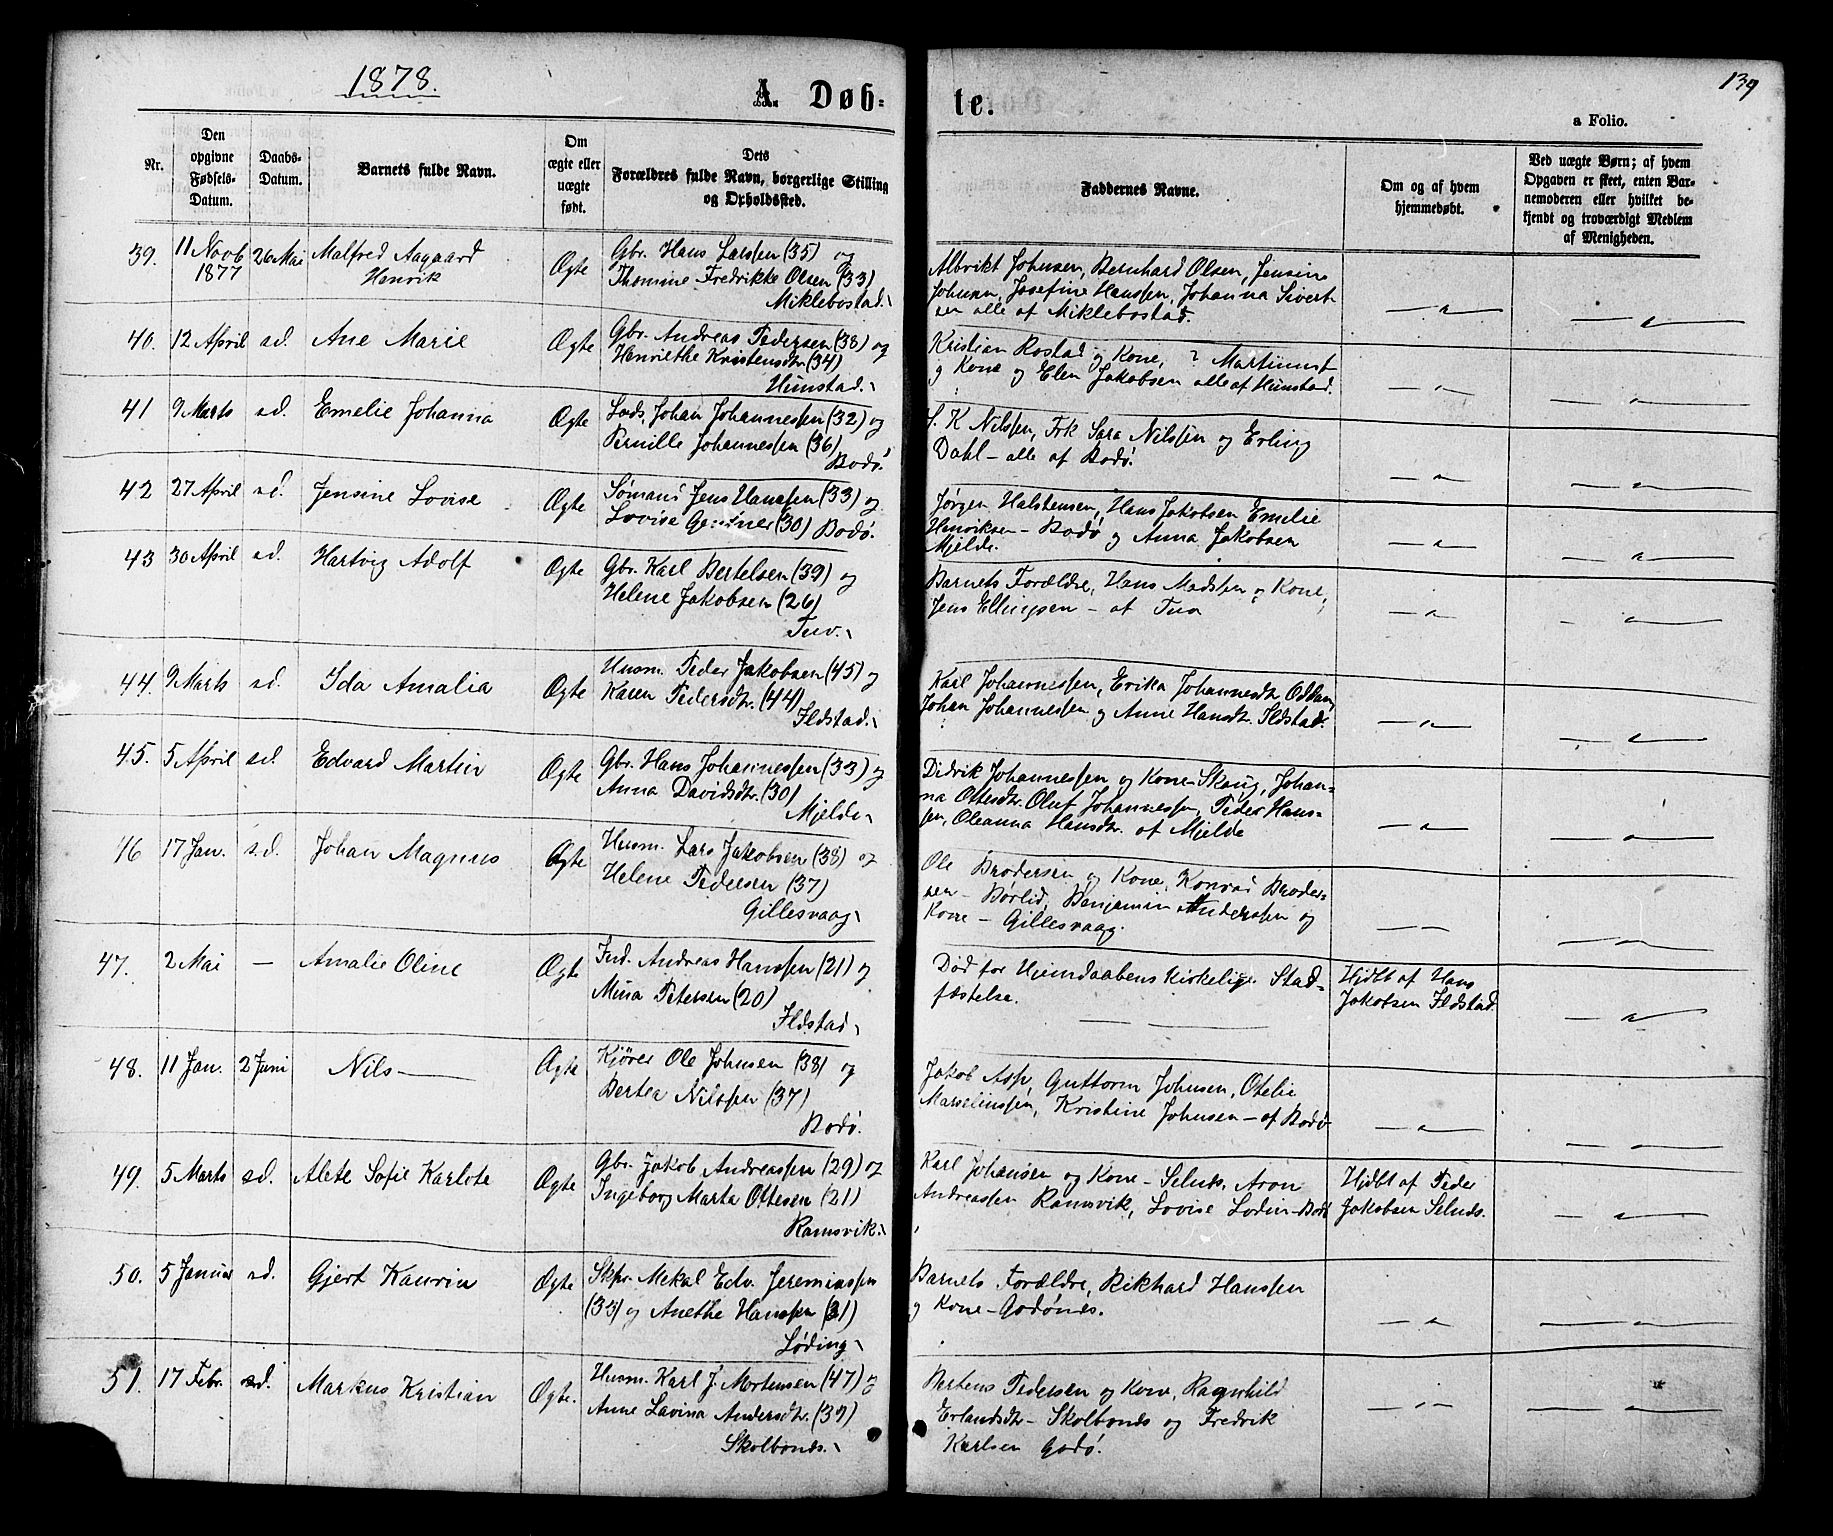 1878.
A Døb-
te.
139
a Folio.
Nr.
Den opgivne Fødsels-Datum.
Daabs-Datum.
Barnets fulde Navn.
Om ægte eller uægte født.
Dets Forældres fulde Navn, borgerlige Stilling og Opholdssted.
Faddernes Navne.
Om og af hvem hjemmedøbt.
Ved uægte Børn; af hvem Opgaven er skeet, enten Bar-nemoderen eller hvilket be-kjendt og troværdigt Medlem af Menigheden.
39. 11 Novb 1877 26 Mai Malfred Aagaard Henrik Ægte
Gbr. Hans Larssen (35) og
Thomine Fredrikke Olsen (33)
Miklebostad.
Albrikt Johnsen, Bernhard Olsen, Jensine
Johnsen, Josefine Hanssen, Johanna Sivert
sen alle af Miklebostad.
— a — — a —
40. 12 April sd. Ane Marie Ægte
Gbr. Andreas Pedersen (38) og
Henriethe Kristensdtr. (34)
Hunstad.
Kristian Rostad og Kone, ? Martinus
og Kone og Elen Jakobsen alle af Hunstad.
— a — — a —
41 9 Marts sd. Emelie Johanna Ægte
Lods. Johan Johannessen (32) og
Pernille Johannessen (36)
Bodø.
K Nilssen, Frk Sara Nilssen og Erling
Dahl — alle af Bodø.
— a — — a —
42 27 April sd. Jensine Lovise Ægte
Sømand Jens Hanssen (33) og
Lovise (30) Bodø.
Jørgen Halstensen, Hans Jakobsen Emelie
Henriksen — Bodø og Anna Jakobsen
Mjelde.
— a — — a —
43 30 April sd. Hartvig Adolf Ægte
Gbr. Karl Bertelsen (39) og
Helene Jakobsen (26)
Tuv.
Barnets Forældre, Hans Madssen og Kone,
Jens Ellingsen — af Tuv
— a — — a —
44. 9 Marts sd. Ida Amalia Ægte
Husm. Peder Jakobsen (45) og
Karen Pedersdtr. (44)
Ildstad.
Karl Johannessen, Erika Johannesdtr Oddan,
Johan Johannessen og Anne Hansdtr. Ildstad.
— a — — a —
45. 5 April sd. Edvard Martin Ægte
Gbr. Hans Johannessen (33) og
Anna Davidsdtr. (30)
Mjelde
Didrik Johannessen og Kone Skaug, Johan-
na Ottesdtr. Oluf Johannessen, Peder Hans-
sen, Oleanna Hansdtr. af Mjelde
— a — — a —
46 17 Jan. s.d. Johan Magnus Ægte
Husm. Lars Jakobsen (38) og
Helene Pedersen (37)
Gillesvaag
Ole Brodersen og Kone, Konrad Broder-
sen — Børlid, Benjamin Anderssen og
Kone — Gillesvaag.
— — — a —
47. 2 Mai — Amalie Oline Ægte
Ind. Andreas Hanssen (21) og
Mina Petersen (20)
Ildstad
Død før Hjemdaabens kirkelige Stad-
fæstelse.
Hjdbt af Hans
Jakobsen Ildstad.
— a —
48. 11 Jan. 2 Juni Nils — Ægte
Kjører Ole Johnsen (38) og
Bertea Nilssen (37)
Bodø.
Jakob Asp, Guttorm Johnsen, Otelie
Marseliussen, Kristine Johnsen — af Bodø
— a — — a —
49. 5 Marts sd. Alete Sofie Karlote Ægte
Gbr. Jakob Andreassen (29) og
Ingeborg Marta Ottesen (21)
Ramsvik.
Karl Johansen og Kone — Selnes. Aron
Andreassen Ramsvik, Lovise Lodin — Bodø
Hjdbt af Peder
Jakobsen Selnes.
— a —
50. 5 Januar sd. Gjert Kaurin Ægte
Skpr. Mekal Edv. Jeremiassen
(33) og Anethe Hanssen (31)
Løding
Barnets Forældre, Rikhard Hanssen
og Kone — Godønes.
— a — — a —
51. 17 Febr. sd. Markus Kristian Ægte.
Husm. Karl J. Mortensen (47) og
Anne Lavina Andersdtr. (39)
Skolbones.
Bertens Pedersen og Kone, Ragnhild
Erlandsdtr — Skolbones og Fredrik
Karlsen Godø.
— a — — a —